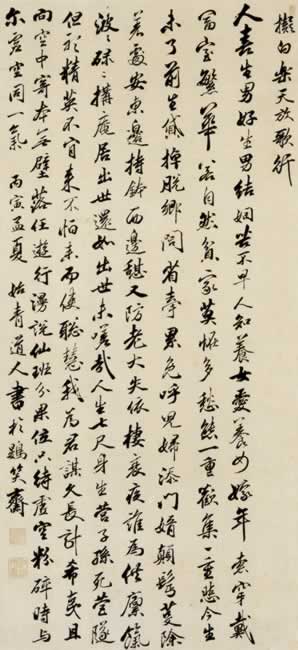 擬白樂天放歌行
人喜生男好生男結姻苦不早人知養女愛養女嫁年索
富室繁華若自然貧家莫怪多愁態一重歡集一重悲今生
未了前生債掉脫鄉問省累呼兒婦添門婿顛髩除
處安東邊持缽西邊又防老大失依棲衰夜誰為供廩餼
波波碌碌搆庵居出世還如出世未嗟哉人生七尺身生營子孫死營隧
但於精英不肯來不怕來而聰慧我為君謀久長計希夷且
向空中寄本無壁落任遊行漫說仙班分果位只待虛空粉碎時與
尔虛空同一氣 丙寅孟夏 姑青道人書於鷃笑齋